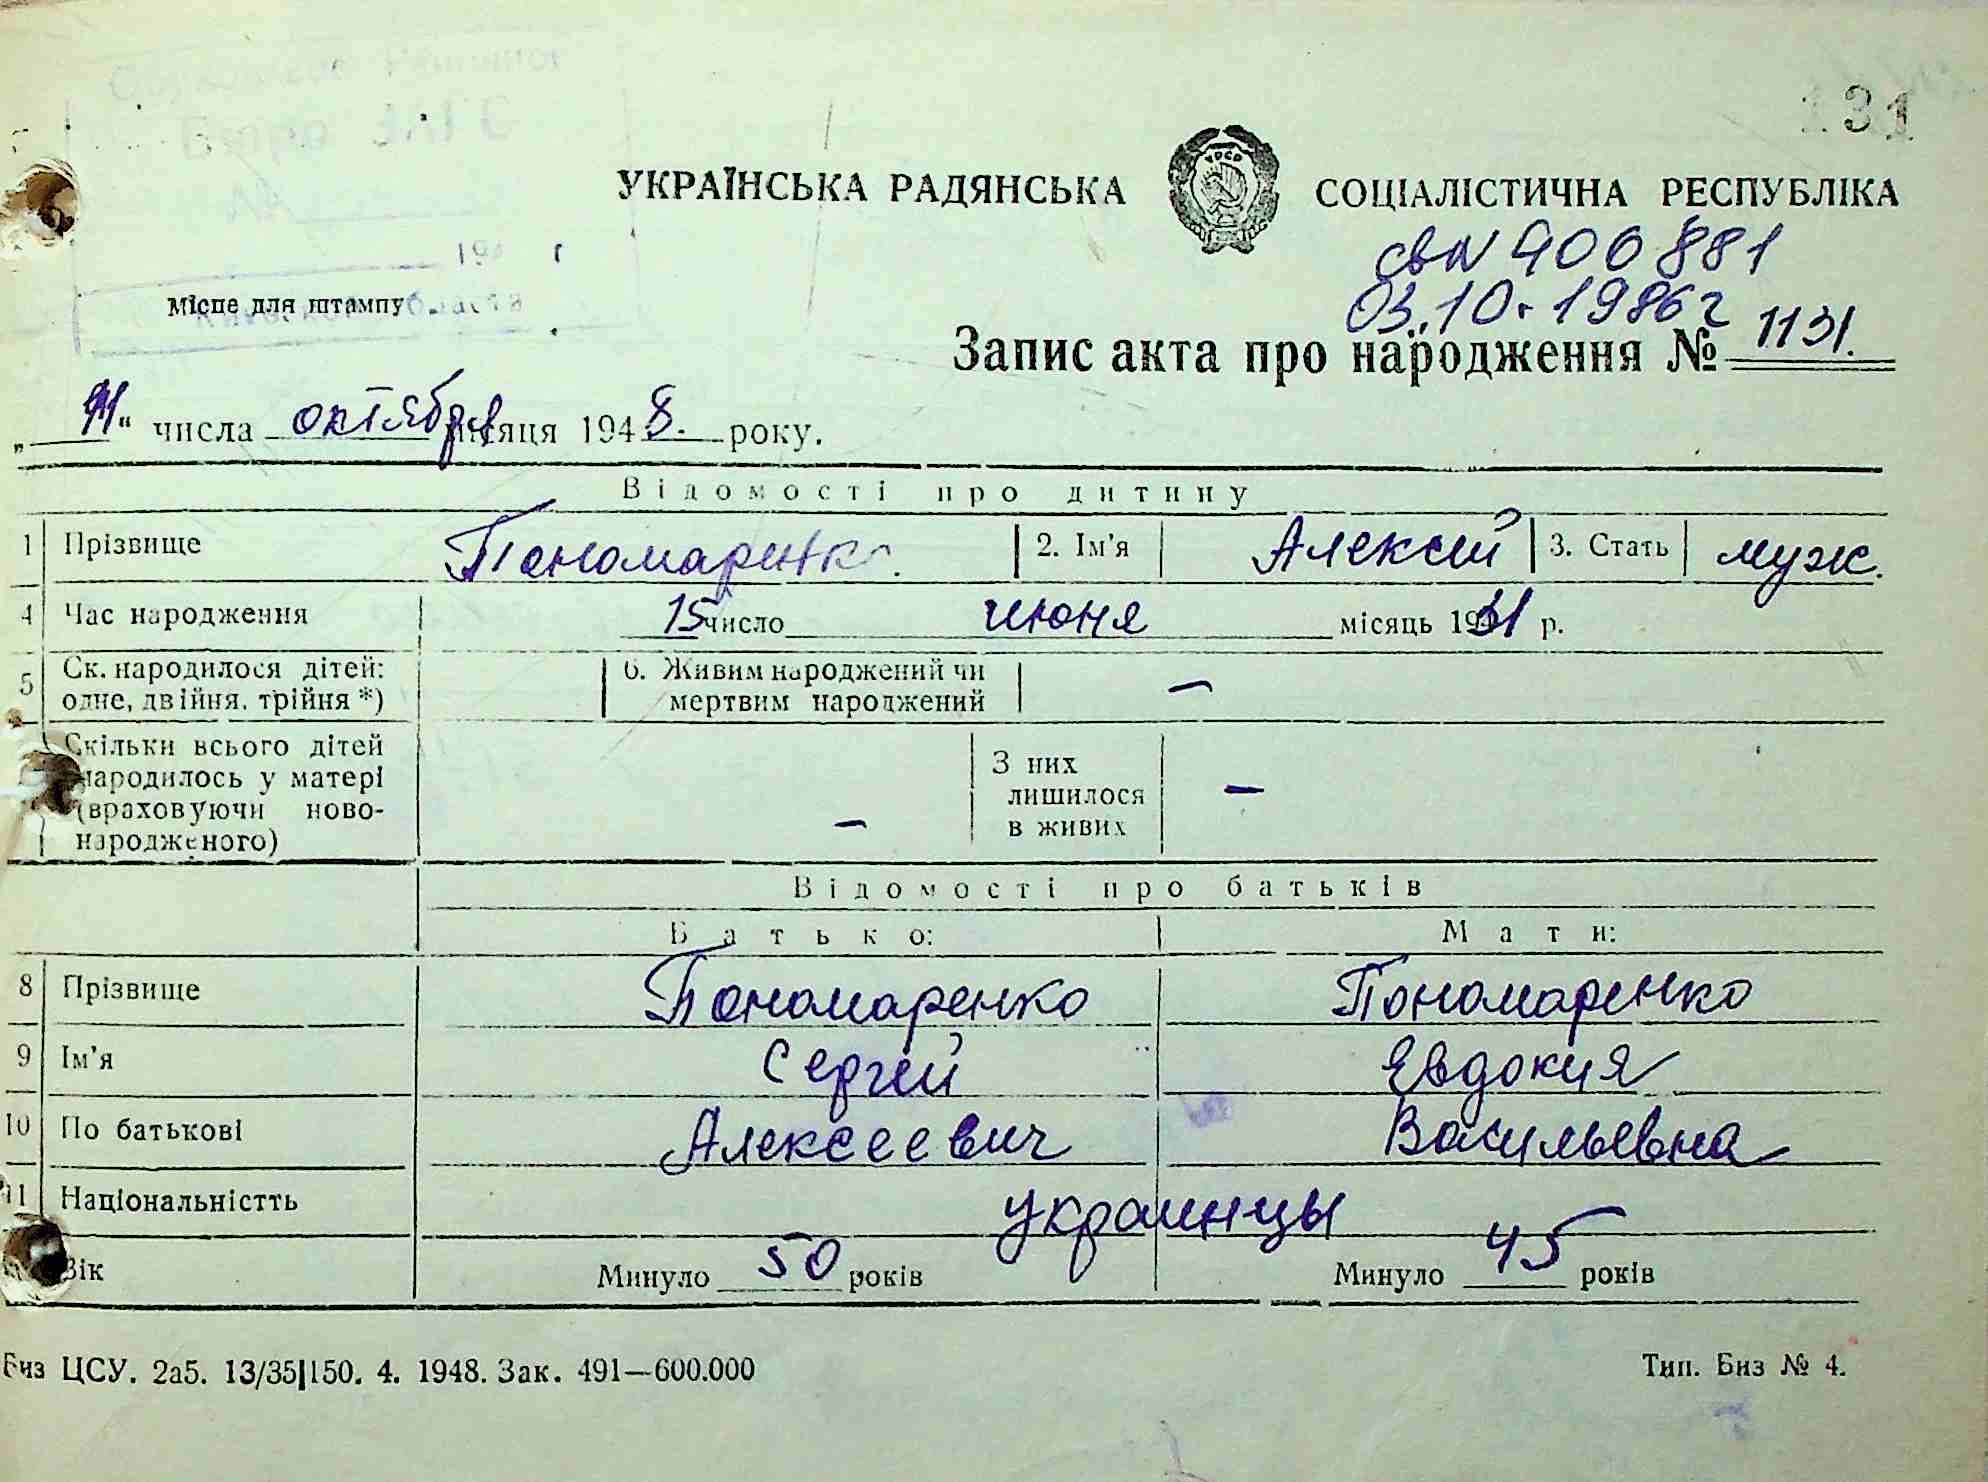 131
Бюро ЗАГС
194 г
УКРАЇНСЬКА РАДЯНСЬКА СОЦІАЛІСТИЧНА РЕСПУБЛІКА
свN 400881
03.10.1986г
Місце для штампу
Запис акта про народження № 1131.
„ 11 “ числа октября місяця 1948. року.
Відомості про дитину
1 Прізвище Пономаренко. 2. Ім'я Алексей 3. Стать муж.
4 Час народження 15 число июня місяць 1931 р.
5 Ск. народилося дітей: одне, двійня, трійня *) 6. Живим народжений чи мертвим народжений —
Скільки всього дітей народилось у матері (враховуючи новонародженого) — З них лишилося в живих —
Відомості про батьків
Батько: Мати:
8 Прізвище Пономаренко Пономаренко
9 Ім'я Сергей Евдокия
10 По батькові Алексеевич Васильевна
11 Національністть украинцы
Вік Минуло 50 років Минуло 45 років
Биз ЦСУ. 2а5. 13/35|150. 4. 1948. Зак. 491—600.000 Тип. Биз № 4.